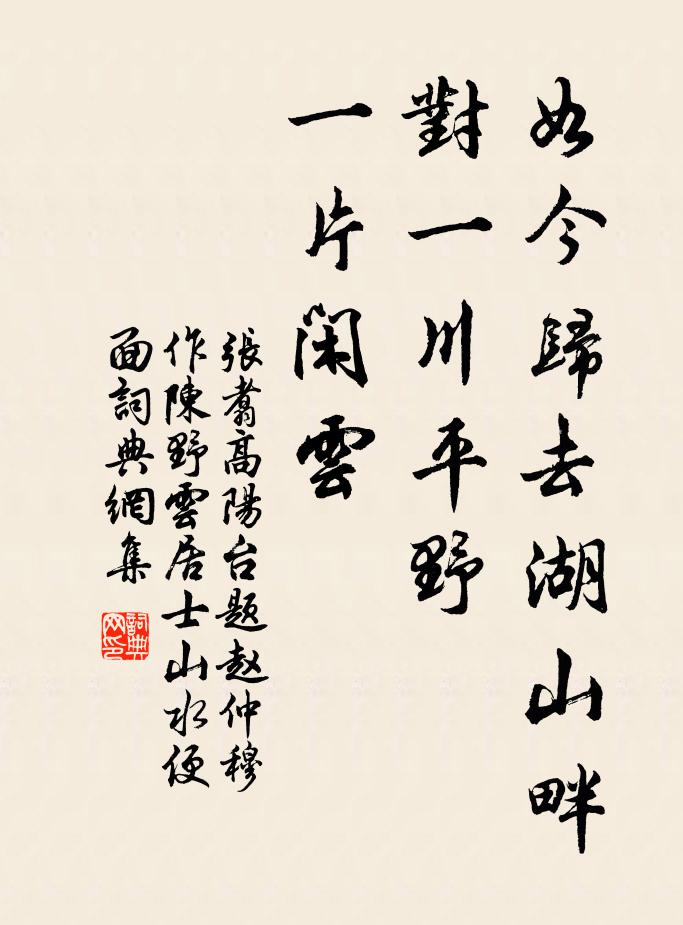 如今歸去湖山畔
對一川平野
一片閑雲
張翥高陽台题赵仲穆
作陳野雲居士山水便
面詞典網集
詞典网印